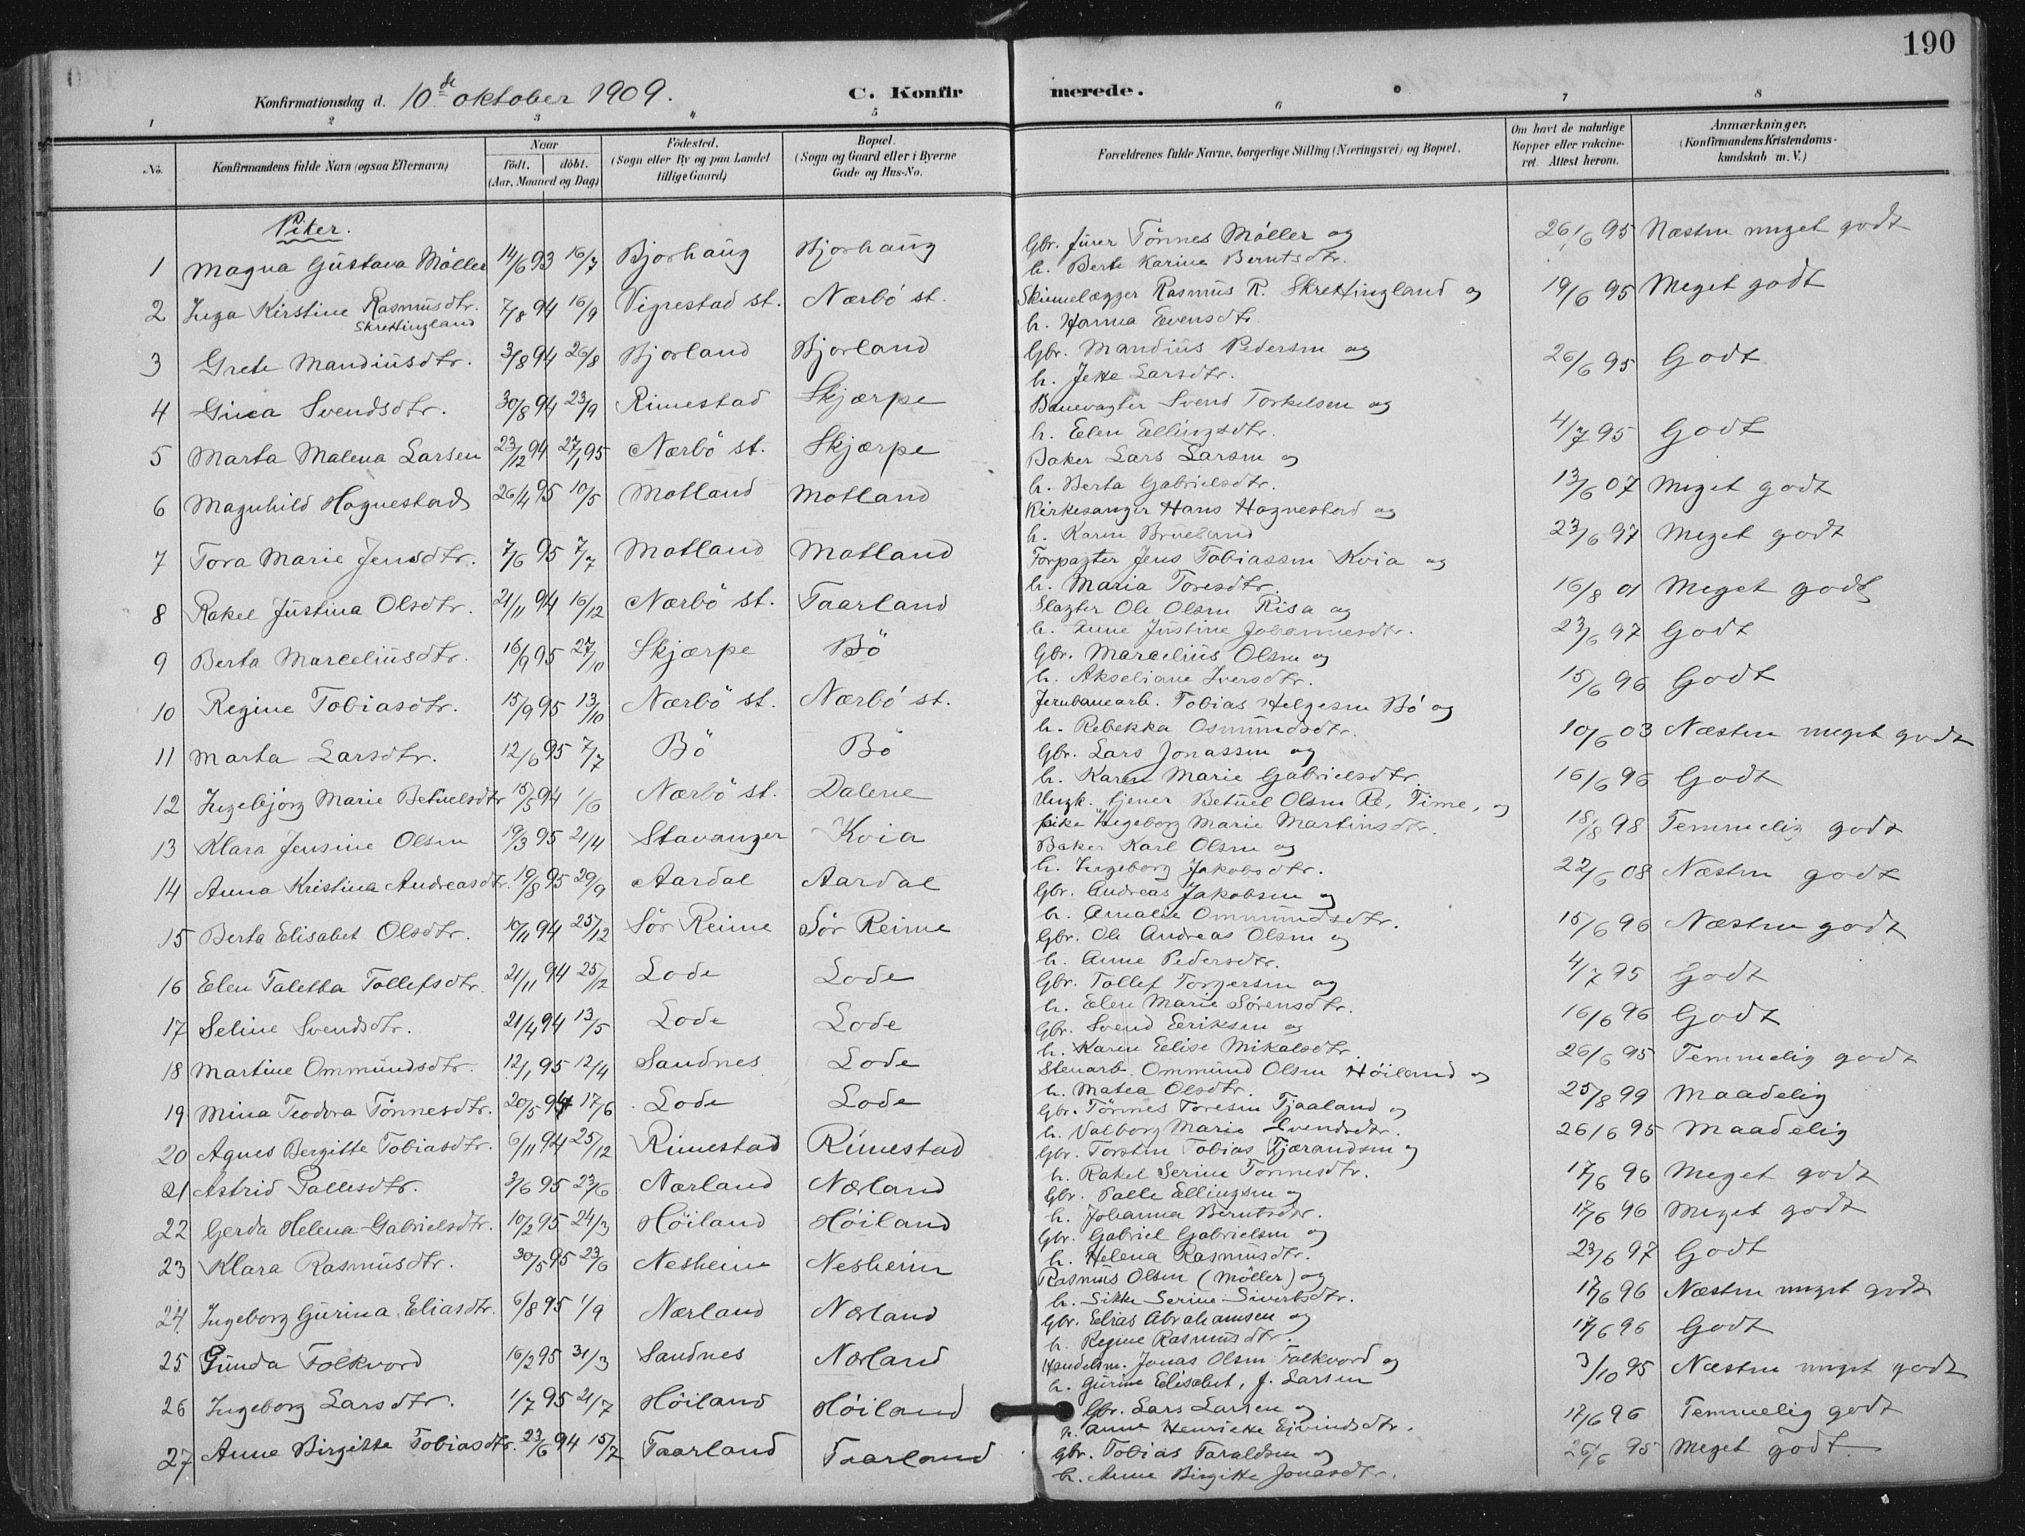 190
Konfirmationsdag d. 10de oktober 1909. C. Konfirmerede.
1 2 3 4 5 6 7 8
No. Konfirmandens fulde Navn (ogsaa Efternavn) Naar født. døbt. (Aar, Maaned og Dag) Fødested. (Sogn eller By og paa Landet tillige Gaard) Bopæl. (Sogn og Gaard eller i Byerne Gade og Hus-No. Forældrenes fulde Navne, borgerlige Stilling (Næringsvei) og Bopæl. Om havt de naturlige Kopper eller vakcineret. Attest herom. Anmærkninger. (Konfirmandens Kristendomskundskab m. V.)
Piker.
1 Magna Gustava Møller 14/6 93 16/7 Bjorhaug Bjorhaug Gbr. fürer Tönnes Møller og h. Berte Karine Berntsdtr. 26/6 95 Næsten meget godt
2 Inga Kirstine Rasmusdtr. Skrettingland 7/8 94 16/9 Vigrestad st. Nærbö st. Skinnelægger Rasmus R. Skrettingland og h. Hanna Evensdtr. 19/6 95 Meget godt
3 Grete Mandiusdtr. 3/8 94 26/8 Bjorland Bjorland Gbr. Mandius Pedersen og h. Jette Larsdtr. 26/6 95 Godt
4 Gina Svendsdtr. 30/8 94 23/9 Rimestad Skjærpe Banevagter Svend Torkelsen og h. Elen Ellingsdtr. 4/7 95 Godt
5 Marta Malena Larsen 23/12 94 27/1 95 Nærbö st. Skjærpe Baker Lars Larsen og h. Berta Gabrielsdtr. 13/6 07 Meget godt
6 Magnhild Hognestad 26/4 95 10/5 Motland Motland Kirkesanger Hans Hognestad og h. Karen Brueland 23/6 97 Meget godt
7 Tora Marie Jensdtr. 7/6 95 7/7 Motland Motland Forpagter Jens Tobiassen Kvia og h. Maria Toresdtr. 16/8 01 Meget godt
8 Rakel Justina Olsdtr. 21/11 94 16/12 Nærbö st. Taarland Slagter Ole Olsen Risa og h. Anne Justine Johannesdtr. 23/6 97 Godt
9 Berta Marceliusdtr. 16/9 95 27/10 Skjærpe Bö Gbr. Marcelius Olsen og h. Akseliane Iversdtr. 15/6 96 Godt
10 Regine Tobiasdtr. 15/9 95 13/10 Nærbö st. Nærbö st. Jernbanearb. Tobias Helgesen Bö og h. Rebekka Osmundsdtr. 10/6 03 Næsten meget godt
11 Marta Larsdtr. 12/6 95 7/7 Bö Bö Gbr. Lars Jonassen og h. Karen Marie Gabrielsdtr. 16/6 96 Godt
12 Ingebjörg Marie Betuelsdtr 15/5 94 1/6 Nærbö st. Dalene Ungk. tjener Betuel Olsen Re, Time, og pike Ingeborg Marie Martinsdtr. 18/8 98 Temmelig godt
13 Klara Jensine Olsen 19/3 95 21/4 Stavanger Kvia Baker Karl Olsen og h. Ingeborg Jakobsdtr. 22/6 08 Næsten godt
14 Anna Kristina Andreasdtr. 19/8 95 29/9 Aardal Aardal Gbr. Andreas Jakobsen og h. Amalie Ommundsdtr. 15/6 96 Næsten godt
15 Berta Elisabet Olsdtr. 10/11 94 25/12 Sör Reime Sör Reime Gbr. Ole Andreas Olsen og h. Anne Pedersdtr. 4/7 95 Godt
16 Elen Taletta Tollefsdtr. 21/11 94 25/12 Lode Lode Gbr. Tollef Torgersen og h. Elen Marie Sörensdtr. 16/6 96 Godt
17 Seline Svendsdtr. 21/4 94 13/5 Lode Lode Gbr. Svend Eriksen og h. Karen Elise Mikalsdtr. 26/6 95 Temmelig godt
18 Martine Ommundsdtr. 12/1 95 12/4 Sandnes Lode Stenarb. Ommund Olsen Höiland og h. Matea Olsdtr. 25/8 99 Maadelig
19 Mina Teodora Tönnesdtr. 20/5 94 17/6 Lode Lode Gbr. Tönnes Toresen Tjaaland og h. Valborg Marie Svendsdtr. 26/6 95 Maadelig
20 Agnes Bergitte Tobiasdtr. 6/11 94 25/12 Rimestad Rimestad Gbr. Torsten Tobias Tjærandsen og h. Rakel Serine Tönnesdtr. 17/6 96 Meget godt
21 Astrid Pallesdtr. 3/6 95 23/6 Nærland Nærland Gbr. Palle Ellingsen og h. Johanna Berntsdtr. 17/6 96 Meget godt
22 Gerda Helena Gabrielsdtr. 10/2 95 24/3 Höiland Höiland Gbr. Gabriel Gabrielsen og h. Helena Rasmusdtr. 23/6 97 Godt
23 Klara Rasmusdtr. 30/5 95 23/6 Nesheim Nesheim Rasmus Olsen (Møller) og h. Sikke Serine Sivertsdtr. 17/6 96 Næsten meget godt
24. Ingeborg Gurina Eliasdtr. 6/8 95 1/9 Nærland Nærland Gbr. Elias Abrahamsen og h. Regine Rasmusdtr. 17/6 96 Godt
25 Gunda Folkvord 16/2 95 31/3 Sandnes Nærland Handelsm. Jonas Olsen Folkvord og h. Gurine Elisabet, f. Larsen 3/10 95 Næsten meget godt
26 Ingeborg Larsdtr. 1/7 95 21/7 Höiland Höiland Gbr. Lars Larsen og h. Anne Henrikke Eivindsdtr. 17/6 96 Temmelig godt
27 Anne Birgitte Tobiasdtr. 23/6 94 15/7 Taarland Taarland Gbr. Tobias Taraldsen og h. Anne Birgitte Jonasdtr. 26/6 95 Meget godt.